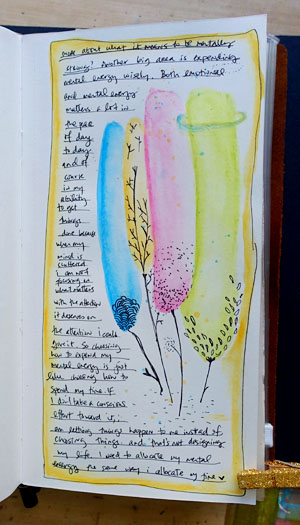 more about what it means to be mentally
strong? Another big area is expending
mental energy wisely. Both emotional
and mental energy
matters a lot in
the pace
of day
to day
and of
course
in my
ability
to get
things
done because
when my
mind is
cluttered
i am not
focusing on
what matters
with the attention
it deserves or
the attention i could
give it. So choosing
how to expend my
mental energy is just
like choosing how to
spend my time. if
I don't take a conscious
effort toward it,
am letting things happen to me instead of
choosing things and that's not designing
my life. I need to allocate my mental
energy the same way i allocate my time